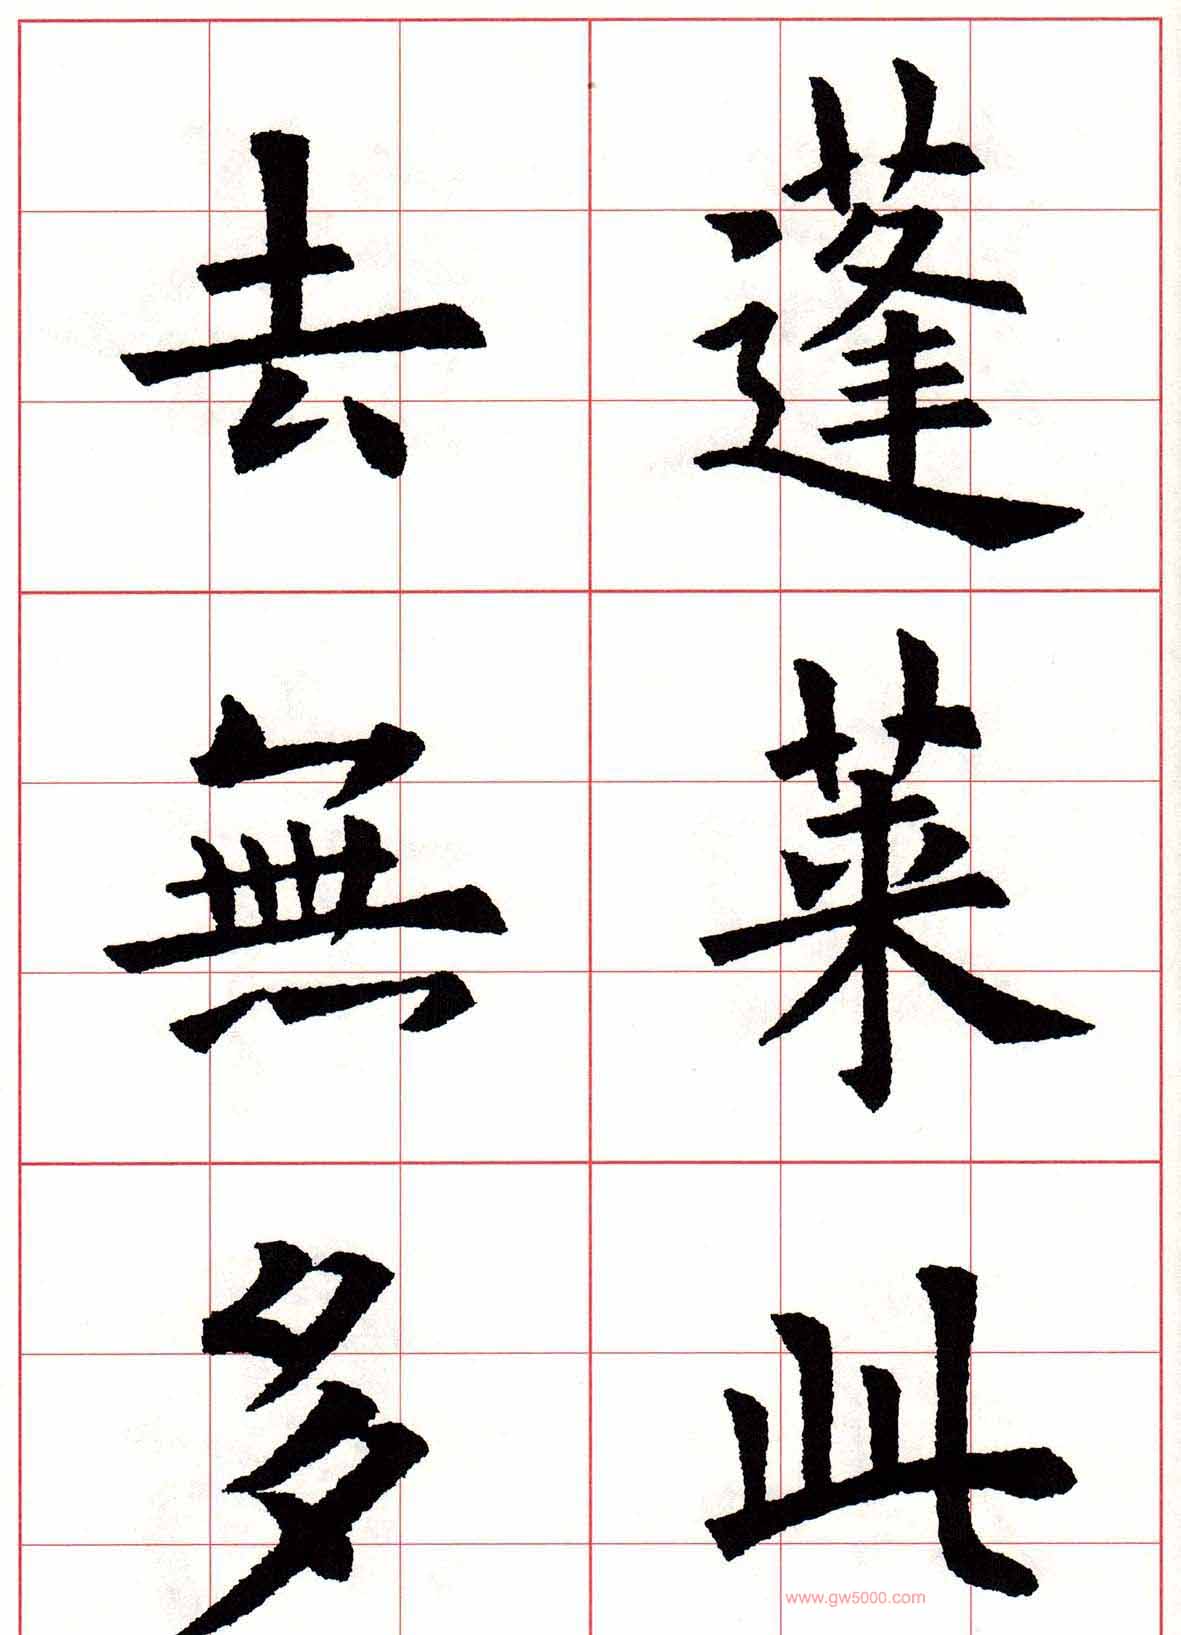 蓬莱此
去無多
www.gw5000.com